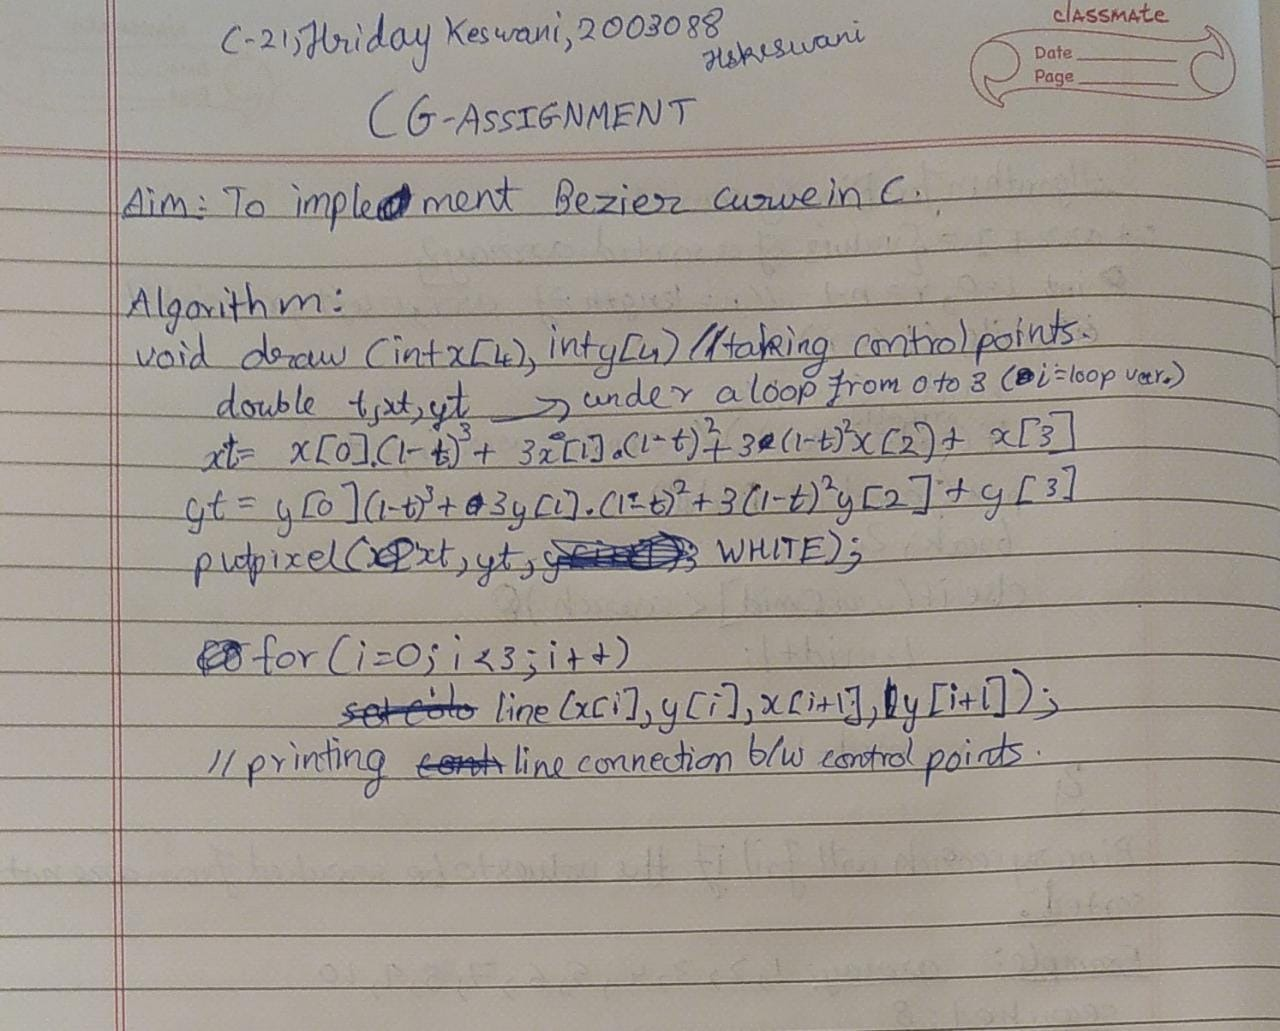 C-21, Hriday Keswani, 2003088
Hskeswani
classmate
Date
Page
CG-ASSIGNMENT
Aim: To implement Bezier curve in C.
Algorithm:
void draw (int x[4], int y[4) // taking control points.
double t, xt, yt → under a loop from 0 to 3 (i=loop var.)
xt= x[0].(1-t)³+ 3x[1].(1-t)²+ 3(1-t)²x[2]+ x[3]
yt = y[0](1-t)³+ 3y[1].(1-t)²+3(1-t)²y[2]+y[3]
putpixel(xt, yt, WHITE);
for (i=0; i<3; i++)
line (x[i], y[i], x[i+1], y[i+1]);
// printing line connection b/w control points.